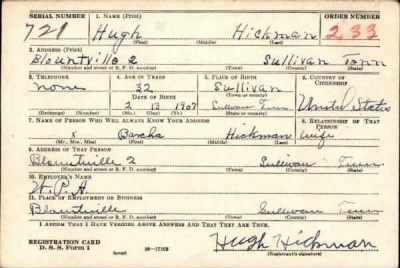 SERIAL NUMBER 1. NAME (Print) ORDER NUMBER
721 Hugh Hickman 233
(First) (Middle) (Last)
2. ADDRESS (Print)
Blountville 2 Sullivan Tenn
(Number and street or R. F. D. number) (Town) (County) (State)
3. TELEPHONE 4. AGE IN YEARS 5. PLACE OF BIRTH 6. COUNTRY OF CITIZENSHIP
none 32 Sullivan
DATE OF BIRTH (Town or county)
2 13 1907 Sullivan Tenn United States
(Exchange) (Number) (Mo.) (Day) (Yr.) (State or country)
7. NAME OF PERSON WHO WILL ALWAYS KNOW YOUR ADDRESS 8. RELATIONSHIP OF THAT PERSON
x Hickman wife
(Mr., Mrs., Miss) (First) (Middle) (Last)
9. ADDRESS OF THAT PERSON
Blountville 2 Sullivan Tenn
(Number and street or R. F. D. number) (Town) (County) (State)
10. EMPLOYER'S NAME
W.P.A
11. PLACE OF EMPLOYMENT OR BUSINESS
Blountville Sullivan Tenn
(Number and street or R. F. D. number) (Town) (County) (State)
I AFFIRM THAT I HAVE VERIFIED ABOVE ANSWERS AND THAT THEY ARE TRUE.
REGISTRATION CARD
D. S. S. Form 1 (over) 16—17105 Hugh Hickman
(Registrant's signature)